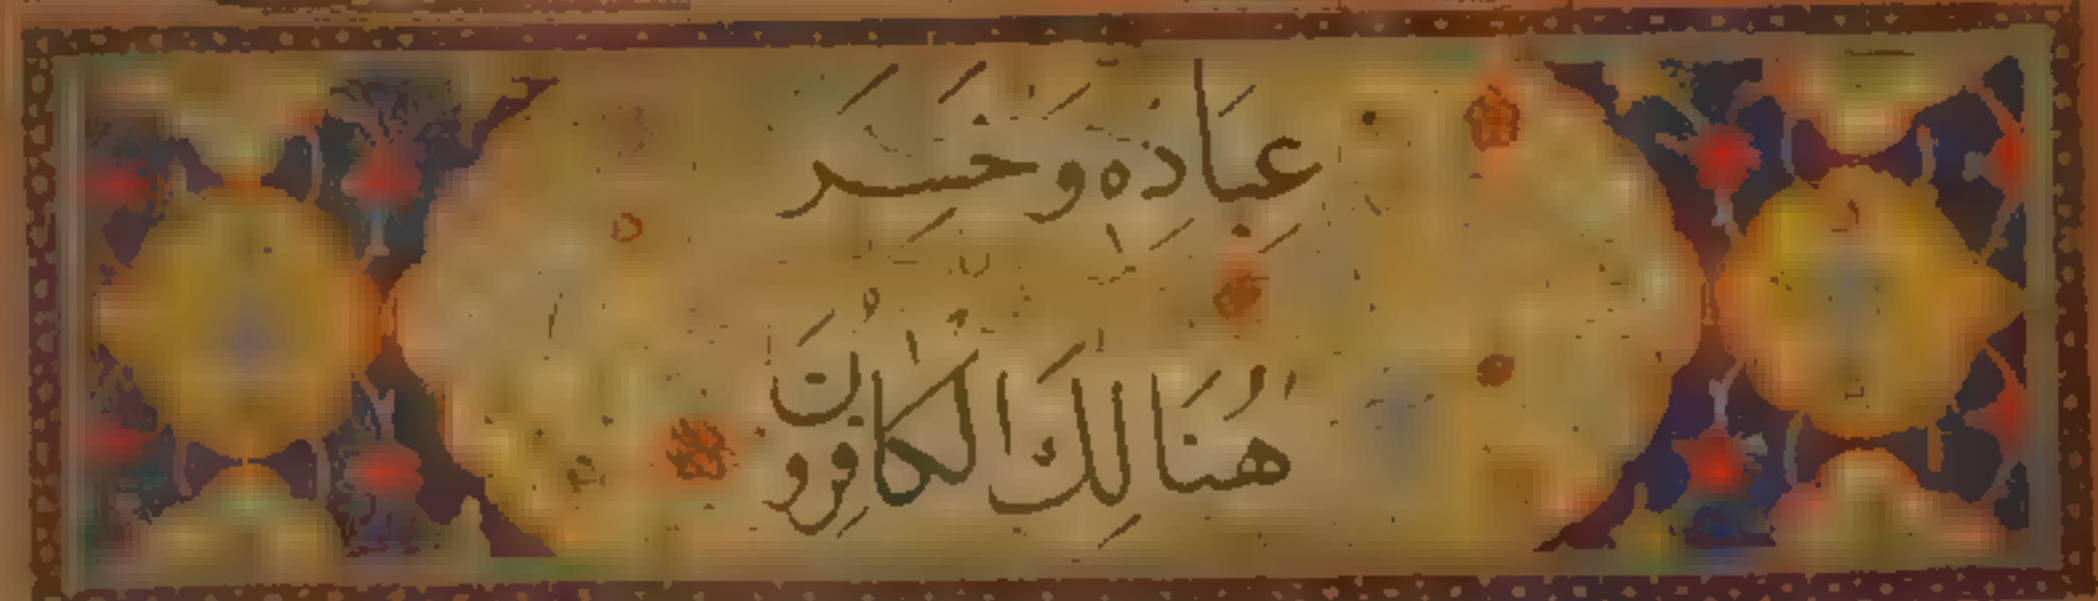 عِبَادِهِ وَخَسِرَ
هُنَالِكَ الْكَافِرُونَ